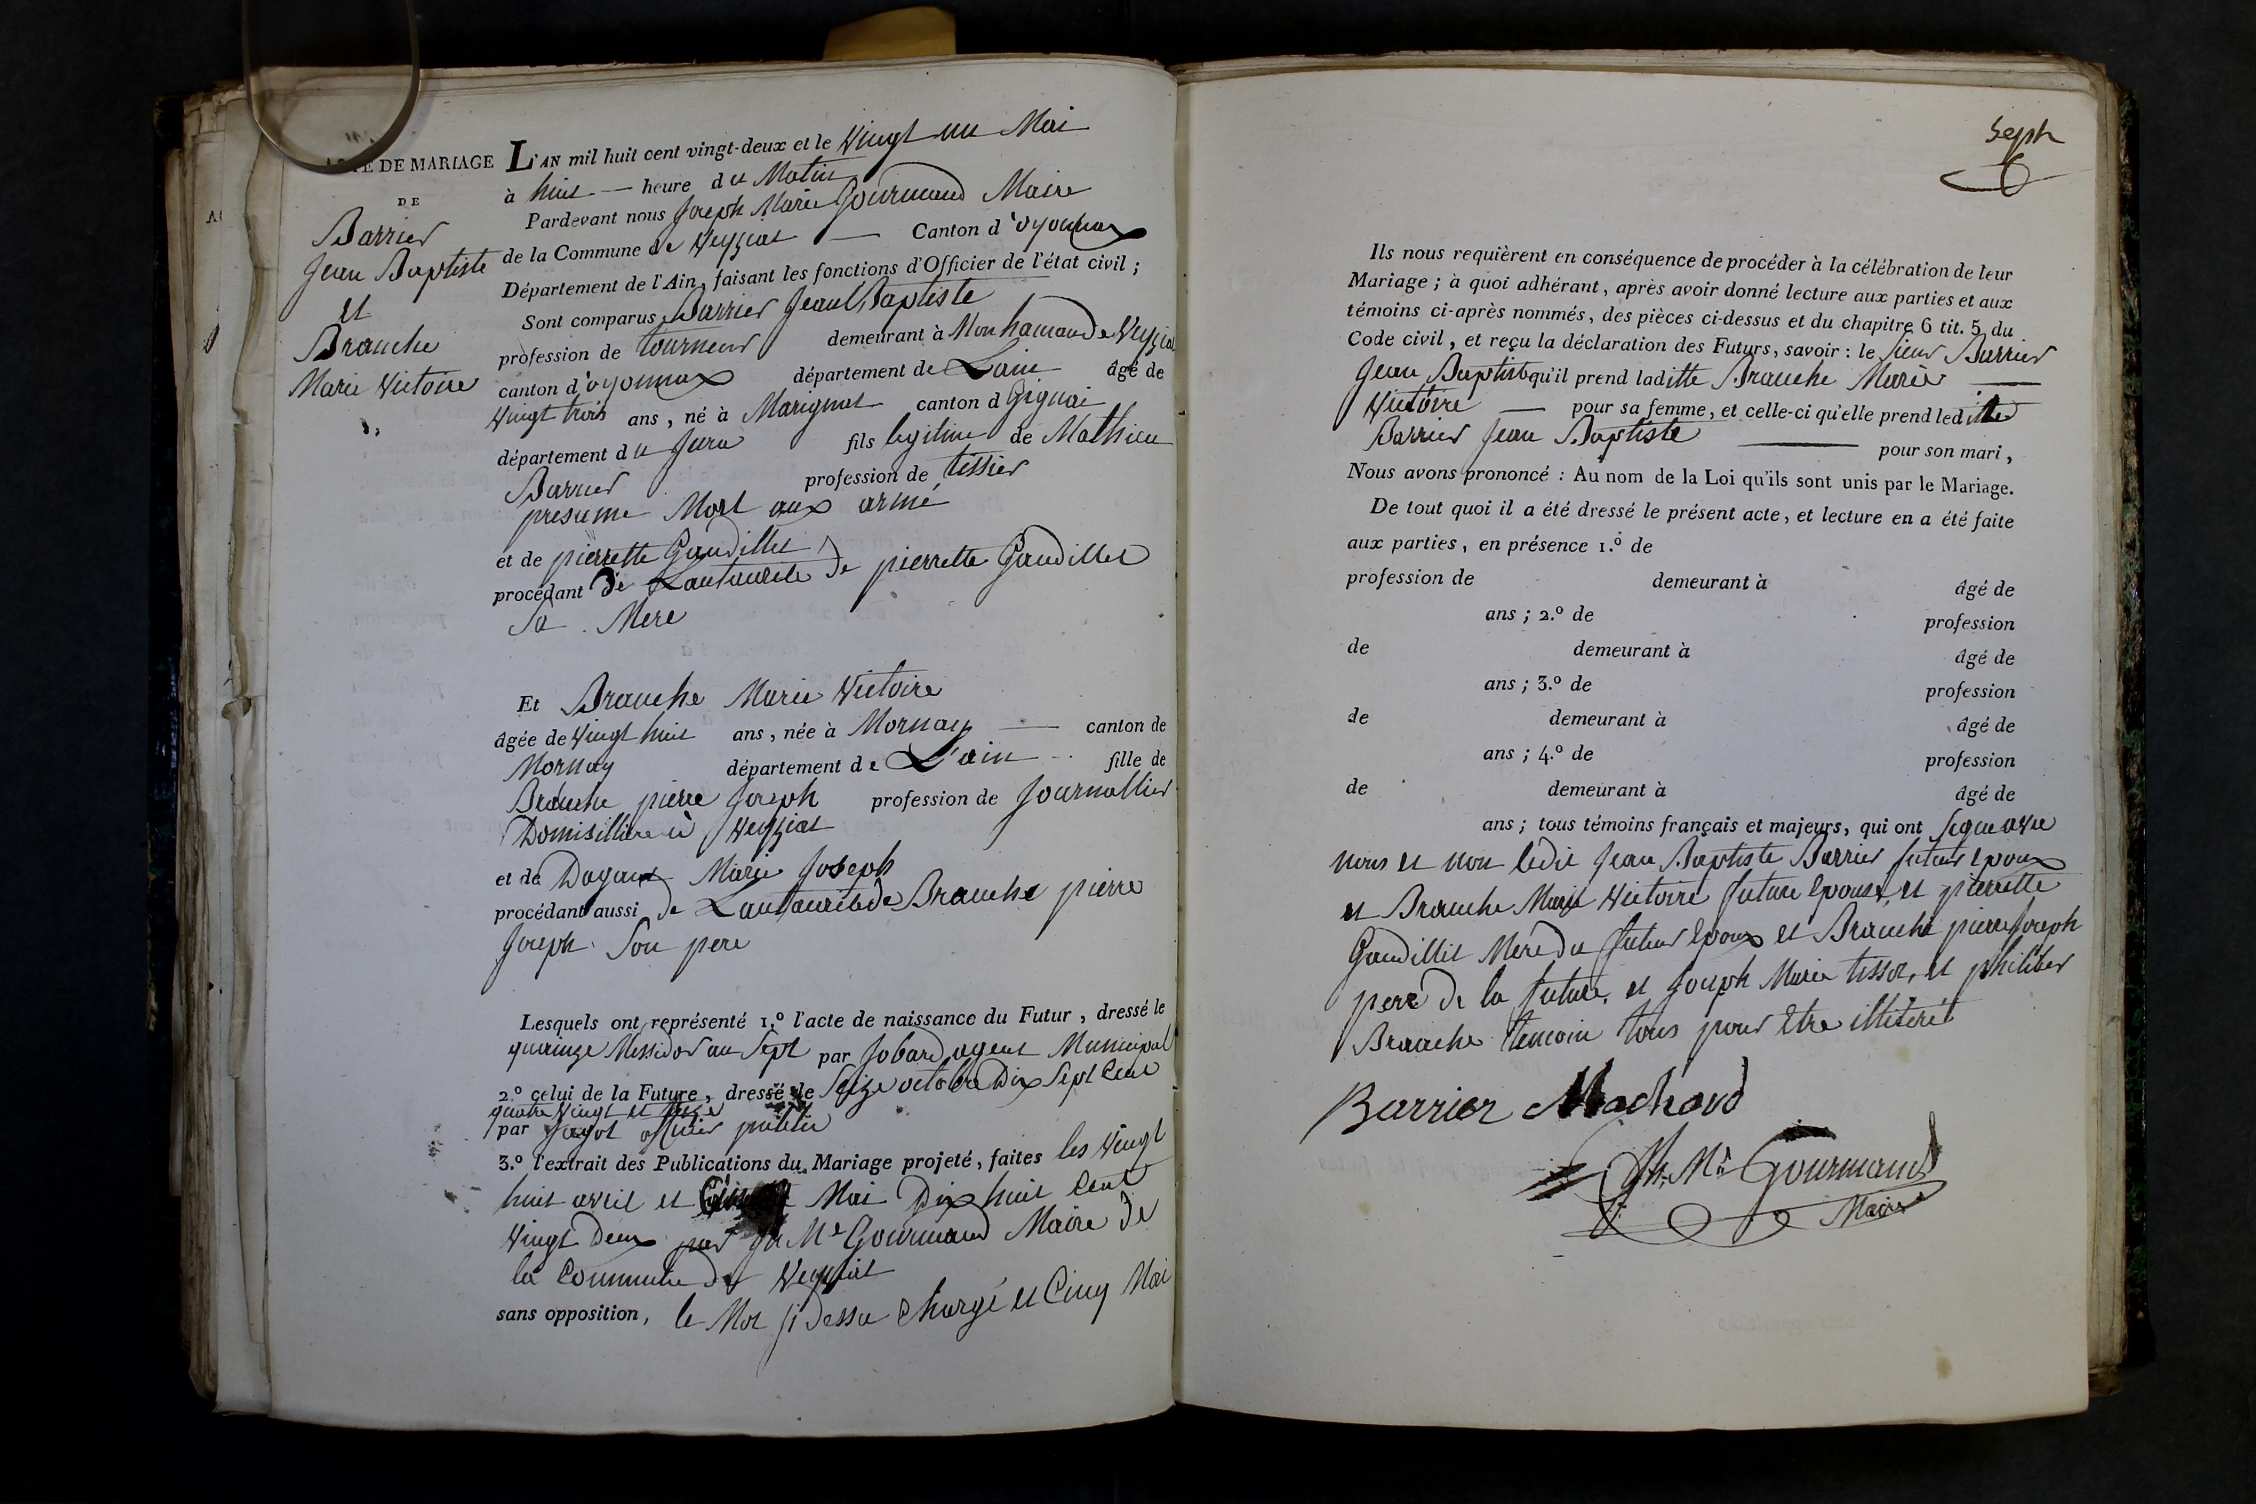 ACTE DE MARIAGE
DE
Barrier
Jean Baptiste
et
Branche
Marie Victoire
L'AN mil huit cent vingt-deux et le Vingt un Mai
à huit — heure du Matin
Pardevant nous Joseph Marie Gourmand Maire
de la Commune de Veyziat — Canton d'oyonnax
Département de l'Ain, faisant les fonctions d'Officier de l'état civil ;
Sont comparus Barrier Jean Baptiste
profession de tourneur demeurant à Mon hamau de Veyziat
canton d'oyonnax département de Lain âgé de
Vingt trois ans, né à Marignat canton d Gignai
département du Jura fils legitime de Mathieu
Barrier profession de tissier
presumé Mort aux armé
et de pierrette Gaudillet
procédant de Lautaurité de pierrette Gaudillet
Sa Mere
Et Branche Marie Victoire
âgée de Vingt huit ans, née à Mornay — canton de
Mornay département de L'ain fille de
Branche pierre Joseph profession de Journallier
Domisillière à Veyziat
et de Marie Joseph
procédant aussi de Lautaurité de Branche pierre
Joseph Son pere
Lesquels ont représenté 1.º l'acte de naissance du Futur, dressé le
quainze Messidor an Sept par Jobard agent Municipal
2.º celui de la Future, dressé le Seize octobre Dix Sept Cent
quatre Vingt et treze
par officier publier
3.º l'extrait des Publications du Mariage projeté, faites les Vingt
huit avril et Mai Dix huit Cent
Vingt Deux par Jh Me Gourmand Maire de
la Commune de Veyziat
sans opposition, le Mot si dessu Chargé et Cinq Mai
Seph
Ils nous requièrent en conséquence de procéder à la célébration de leur
Mariage ; à quoi adhérant, après avoir donné lecture aux parties et aux
témoins ci-après nommés, des pièces ci-dessus et du chapitre 6 tit. 5 du
Code civil, et reçu la déclaration des Futurs, savoir : le Sieur Barrier
Jean Baptiste qu'il prend laditte Branche Marie —
Victoire — pour sa femme, et celle-ci qu'elle prend leditte
Barrier Jean Baptiste — pour son mari,
Nous avons prononcé : Au nom de la Loi qu'ils sont unis par le Mariage.
De tout quoi il a été dressé le présent acte, et lecture en a été faite
aux parties, en présence 1.º de
profession de demeurant à âgé de
ans ; 2.º de profession
de demeurant à âgé de
ans ; 3.º de profession
de demeurant à âgé de
ans ; 4.º de profession
de demeurant à âgé de
ans ; tous témoins français et majeurs, qui ont Signe avec
nous et non ledit Jean Baptiste Barrier futur epoux
et Branche Marie Victoire future epouse, et pierrette
Gaudillit Mere du futur epoux et Branche pierre Joseph
pere de la future, et Joseph Marie tissot, et philiber
Branche temoin tous pour Etre illiteret
Barrier Machard
Jh. Me Gourmand
Maire